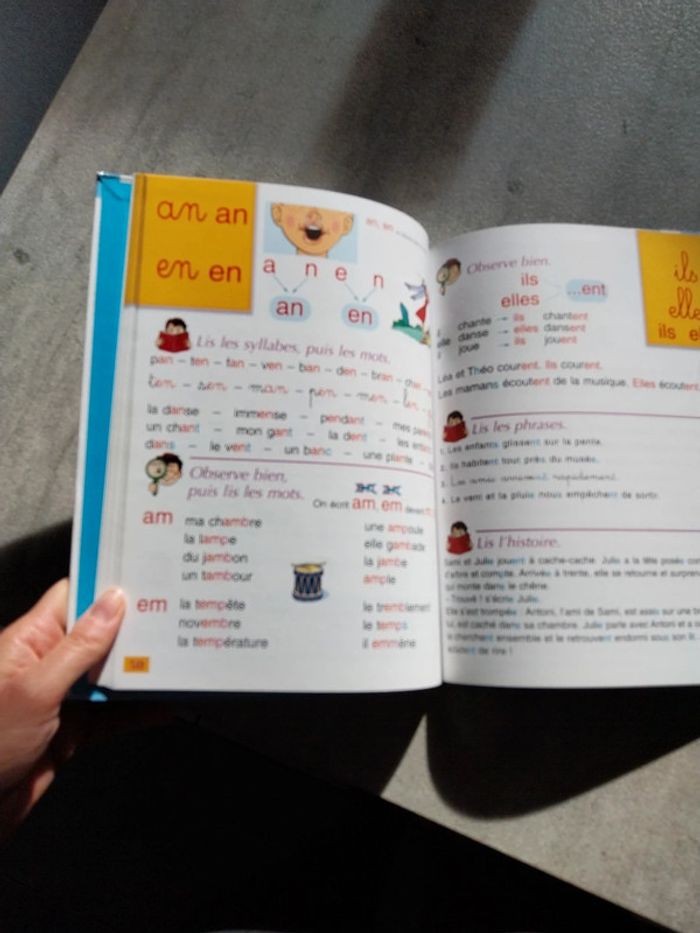 an an
en en
an, en
a n e n
an en
Lis les syllabes, puis les mots.
pan – ten – tan – ven – ban – den – bran –
ten – sen – man – pen – men –
la danse – immense – pendant – mes
un chant – mon gant – la dent – les
dans – le vent – un banc – une plante
Observe bien,
puis lis les mots.
On écrit am, em devant
am ma chambre une ampoule
la lampe elle gambade
du jambon la jambe
un tambour ample
em la tempête le tremblement
novembre le temps
la température il emmène
50
Observe bien.
ils
elles ...ent
chante → ils chantent
elle danse → elles dansent
joue → ils jouent
Léa et Théo courent. Ils courent.
Les mamans écoutent de la musique. Elles écoutent
ils
elle
ils
Lis les phrases.
1. Les enfants glissent sur la pente.
2. Ils habitent tout près du musée.
3. Les amis arrivent rapidement.
4. Le vent et la pluie nous empêchent de sortir.
Lis l'histoire.
Sami et Julie jouent à cache-cache. Julie a la tête posée
d'arbre et compte. Arrivée à trente, elle se retourne et
qui monte dans le chêne.
– Trouvé ! s'écrie Julie.
Elle s'est trompée : Antoni, l'ami de Sami, est assis sur une
lui, est caché dans sa chambre. Julie parle avec Antoni et
le cherchent ensemble et le retrouvent endormi sous son lit...
de rire !